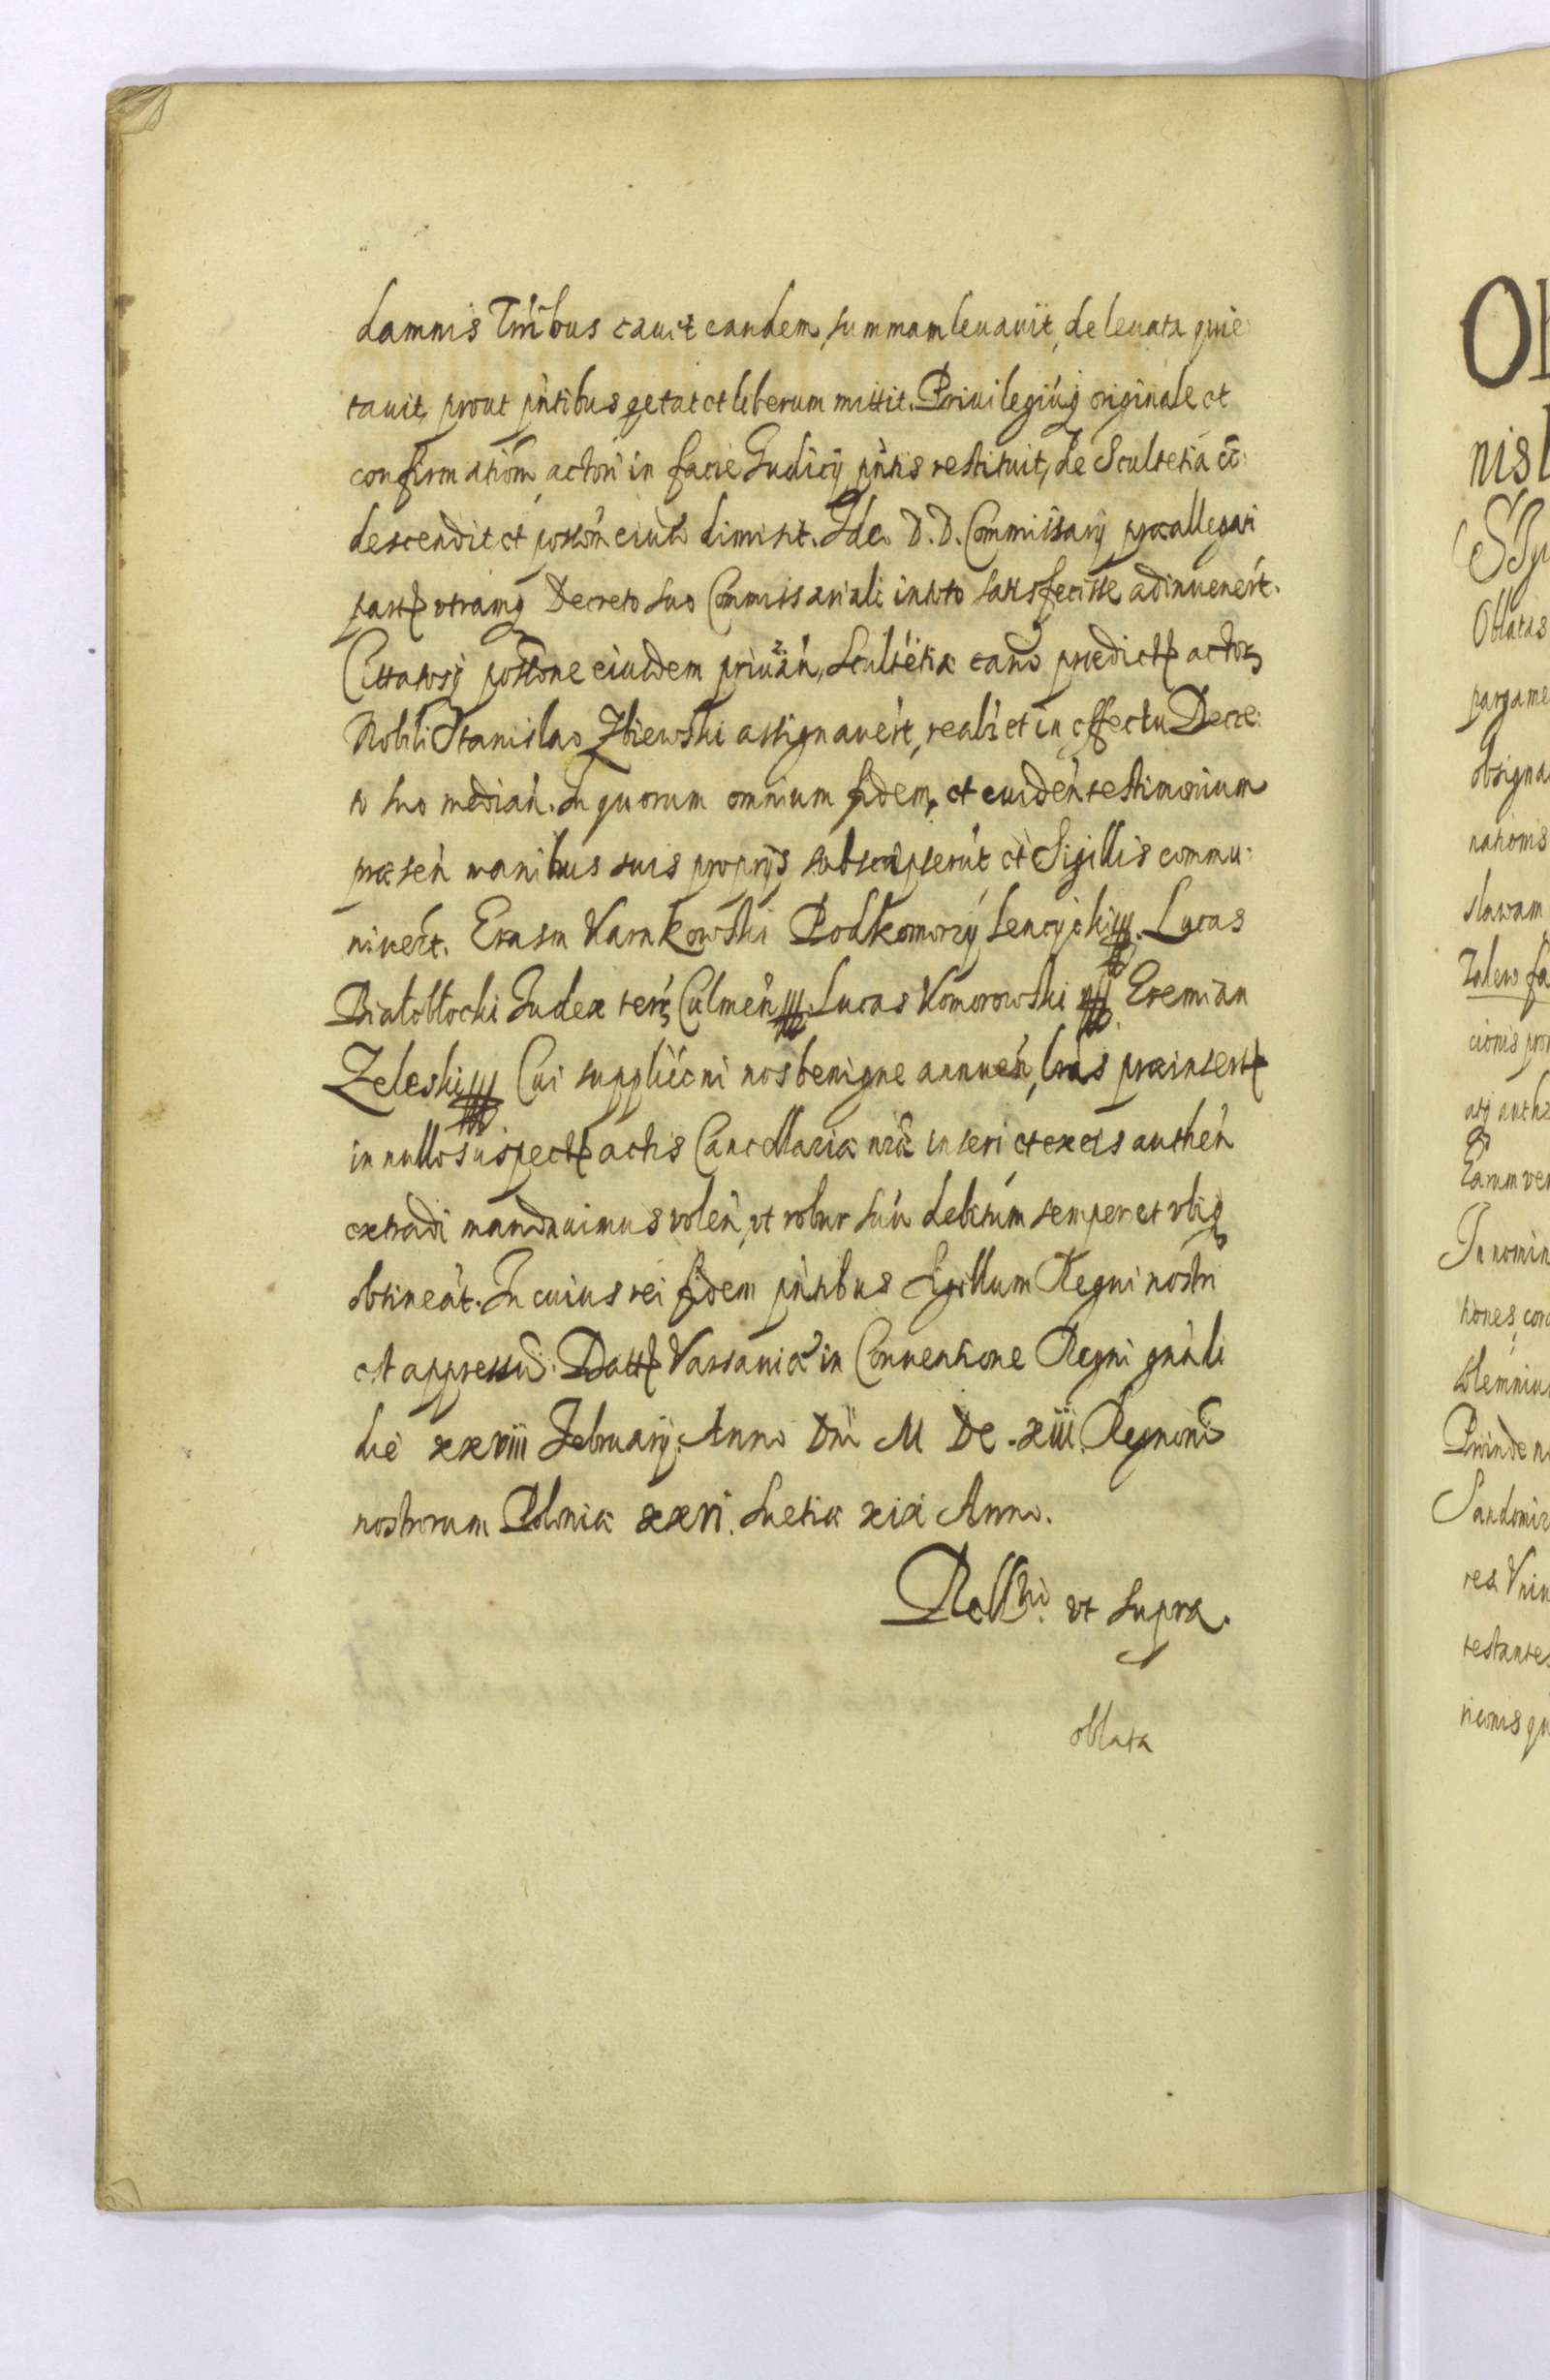 damnis Tribus cauit eandem summam leuauit, de leuata quie:
tauit, prout pñtibus qetat et liberum mittit. Priuilegiuq originale et
confirmationm actori in facie Judicij pñtis restituit, de Scultetia cō:
descendit et possōm eiusd dimisit. Ide D. D. Commissarij præallegati
partē vtramq Decreto suo Commissariali in toto satisfecisse adinuenert.
Citatosq possōne eiusdem priuān, Scultetiæ eand prædictē actor
Nobili Stanislao Zbiewski assignauert, realr et in effectu Decre:
to suo median. In quorum omnium fidem, et euiden testimonium
præsen manibus suis proprijs subscripserut et Sigillis commu:
niuert. Erasm Karnkowski Podkomorzy Lencycki. Lucas
Białobłocki Judex terrs Culmen. Lucas Komorowski Eremian
Zeleski Cui supplicōni nos benigne annuen, lrās præinsert
in nullo suspect actis Cancellariæ nrǣ inseri et ex eis authen
extradi mandauimus volen, vt robur suū debitum semper et vbiq
obtineat. In cuius rei fidem pñtibus Sigillum Regni nostri
est appressū. Datt Varsauiæ in Conuentione Regni gnāli
die xxviii February. Anno Dni M DC. xiii. Regnorū
nostrorum Poloniæ xxvi. Suetiæ xix Anno.
Relltio vt supra.
oblata
Ob
nis
Oblatas
pargame
obsigna
nationis
slawam
Zalew fa
cionis pro
atq auth
Earum ver
In nomin
tiones, cor
solemniu
Proinde n
Sandomir
rea Vnin
testantes
ricionis qu